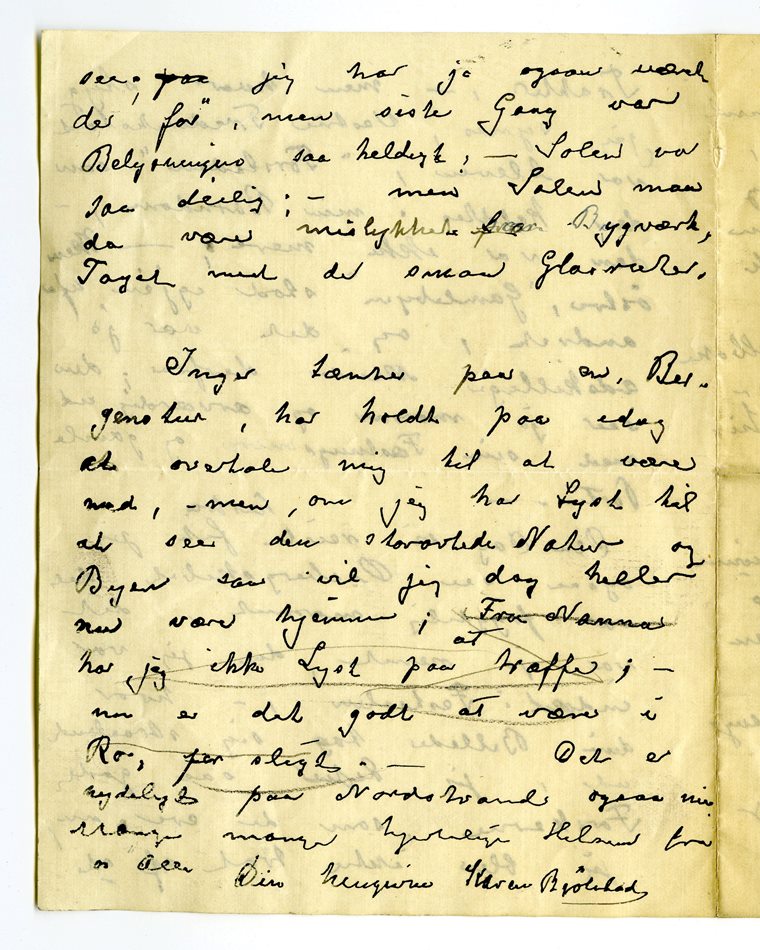 see; paa jeg har jo ogsaa været
der før", men siste Gang var
Belysningen saa heldigt; – Solen va
saa deilig; – men Salen maa
da være mislykket fra Bygværk,
Taget med de smaa Glasruder.
Inger tænker paa en Ber-
genstur, har holdt paa idag
at overtale mig til at være
med, – men, om jeg har Lyst til
at see den storartede Natur og
Byen saa vil jeg dog heller
nu være hjemme; Fru Nanna
har jeg ikke Lyst paa at træffe; –
nu er det godt at være i
Ro, for sligt. – Det er
nydeligt paa Nordstrand ogsaa nu
Mange mange hjertelige Hilsener fra
os Alle Din hengivne Karen Bjølstad